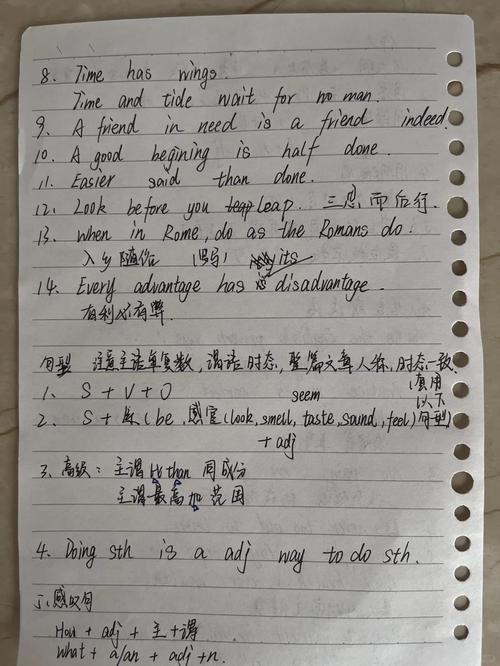 8. Time has wings.
Time and tide wait for no man.
9. A friend in need is a friend indeed.
10. A good begining is half done.
11. Easier said than done.
12. Look before you leap. 三思而后行.
13. When in Rome, do as the Romans do.
入乡随俗 (写) its
14. Every advantage has disadvantage.
有利必有弊.
句型 注意主语单复数, 谓语时态, 整篇文章人称, 时态一致.
1. S + V + O (套用以下句型)
2. S + 系 (be, 感官 (look, smell, taste, sound, feel) seem
+ adj
3. 高级: 主谓比than 同成分
主谓最高加范围
4. Doing sth is a adj way to do sth.
5. 感叹句
How + adj + 主 + 谓
What + a/an + adj + n.